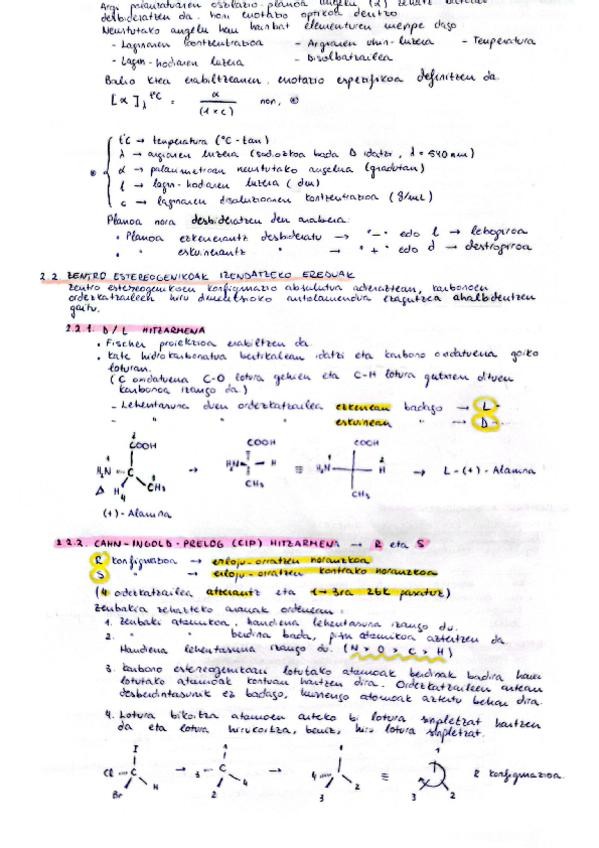 Argi polarizatuaren oszilazio-planoa angelu (α) batean
desbideratzen da. hori errotazio optikoa deritzo
Neurtutako angelu hau hainbat elementuren menpe dago
- Laginaren kontzentrazioa - Argiaren uhin-luzera - Tenperatura
- Lagin-hodiaren luzera - Disolbatzailea
Balio hau erabiltzean, errotazio espezifikoa definitzen da.
[α]λ t°C = α / (l × c) non, ⊛
t°C → tenperatura (°C-tan)
λ → argiaren luzera (sodiozkoa bada D idatzi, λ = 540 nm)
α → polarimetroan neurtutako angelua (gradutan)
⊛ l → lagin-hodiaren luzera (dm)
c → laginaren disoluzioaren kontzentrazioa (g/mL)
Planoa nora desbideratzen den arabera:
• Planoa ezkerrerantz desbideratu → "-" edo l → lebogiroa
• " eskuinerantz " → "+" edo d → destrogiroa
2.2. ZENTRO ESTEREOGENIKOAK IZENDATZEKO EREDUAK
Zentro estereogenikoen konfigurazio absolutua adieraztean, karbonoen
ordezkatzaileen hiru dimentsioko antolamendua ezagutzea ahalbidetzen
gaitu.
2.2.1. D/L HITZARMENA
• Fischer proiekzioa erabiltzen da
• Kate hidrokarbonatua bertikalean idatzi eta karbono oxidatuena goiko
loturan.
(C oxidatuena C-O lotura gehien eta C-H lotura gutxien dituen
karbonoa izango da)
- Lehentasuna duen ordezkatzailea ezkerrean badago → L-
- " " " eskuinean " → D-
2 COOH COOH COOH
1 H₂N C CH₃ 3 H 4 → H₂N H CH₃ ≡ H₂N H CH₃ → L-(+)-Alanina
(+)-Alanina
2.2.2. CAHN-INGOLD-PRELOG (CIP) HITZARMENA → R eta S
R konfigurazioa → erloju-orratzen noranzkoa
S " → erloju-orratzen kontrako noranzkoa
(4 ordezkatzailea atzerantz eta 1→3ra 2tik pasatuz)
Zenbakia zehazteko arauak ordenean:
1. Zenbaki atomikoa, handiena lehentasuna izango du.
2. " " berdina bada, pisu atomikoa aztertzen da.
Handiena lehentasuna izango du. (N > O > C > H)
3. Karbono estereogenikoari lotutako atomoak berdinak badira haiei
lotutako atomoak kontuan hartzen dira. Ordezkatzaileen artean
desberdintasunik ez badago, hurrengo atomoak aztertu behar dira.
4. Lotura bikoitza atomoen arteko bi lotura sinpletzat hartzen
da eta lotura hirukoitza, berriz, hiru lotura sinpletzat.
I 1 1 1
Cl C H Br → 3 C 4 2 → 4 2 3 ≡ 3 2 R konfigurazioa.